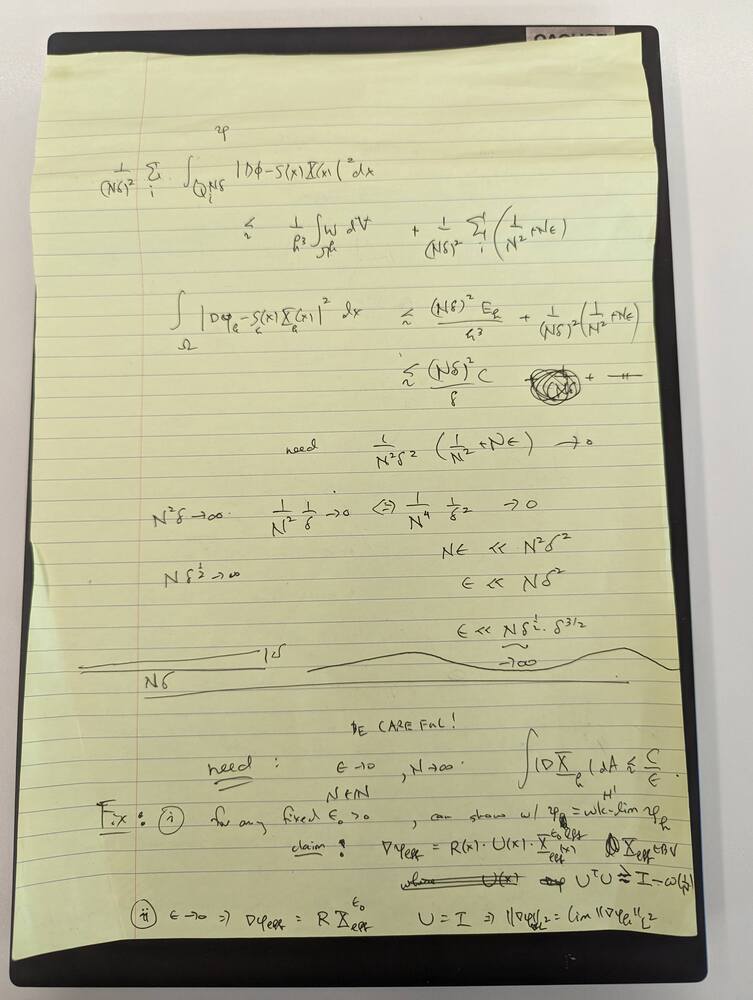 φ
1/(Nδ)² Σ_i ∫_{Q_i^{Nδ}} |Dφ - S(x) X(x)|² dx
≲ 1/h³ ∫_{Ωh} W dV + 1/(Nδ)² Σ_i (1/N² + Nε)
∫_Ω |Dφ_h - S(x) X_h(x)|² dx ≲ (Nδ)² E_h/h³ + 1/(Nδ)² (1/N² + Nε)
≲ (Nδ)² C/δ + -"-
need 1/(N²δ²) (1/N² + Nε) → 0
N²δ → ∞. 1/N² 1/δ → 0 ⟺ 1/N⁴ 1/δ² → 0
Nε ≪ N²δ²
Nδ^{1/2} → ∞
ε ≪ Nδ²
ε ≪ Nδ^{1/2} · δ^{3/2}
→ ∞
δ
Nδ
BE CAREFUL!
need : ε → 0 , N → ∞. ∫ |D X_h| dA ≲ C/ε.
N ∈ ℕ
Fix : (i) for any fixed ε₀ > 0 , can show w/ φ = wk-lim φ_h
H¹
claim : ∇φ_eff = R(x) · U(x) · X_eff^{ε₀}(x) X_eff ∈ BV
U(x) UᵀU ≈ I
(ii) ε → 0 ⇒ ∇φ_eff = R X_eff^{ε₀} U = I ⇒ ||∇φ||_{L²} = lim ||∇φ_h||_{L²}